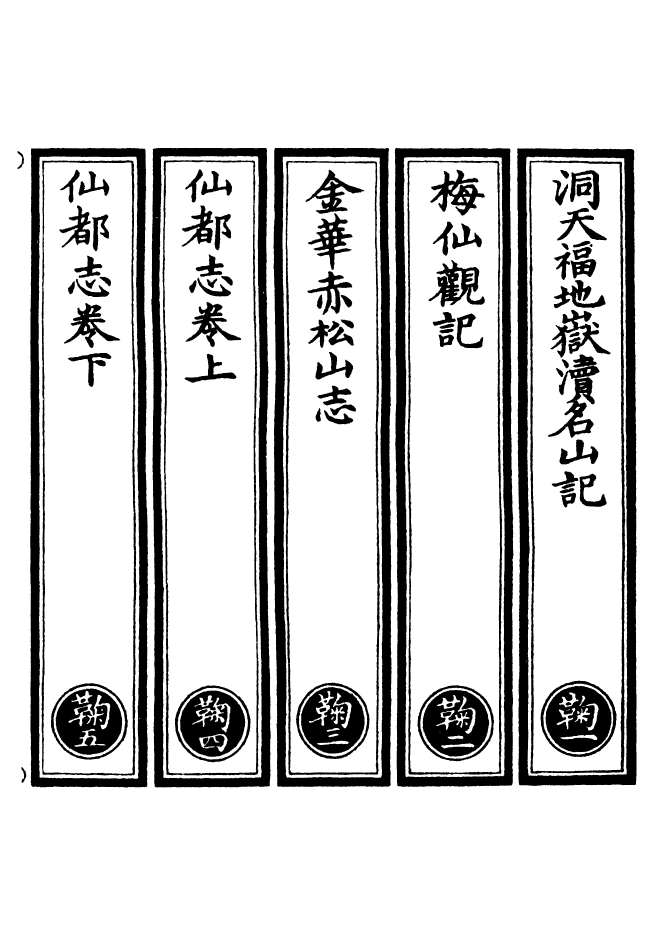 洞天福地嶽瀆名山記
鞠一
梅仙觀記
鞠二
金華赤松山志
鞠三
仙都志卷上
鞠四
仙都志卷下
鞠五